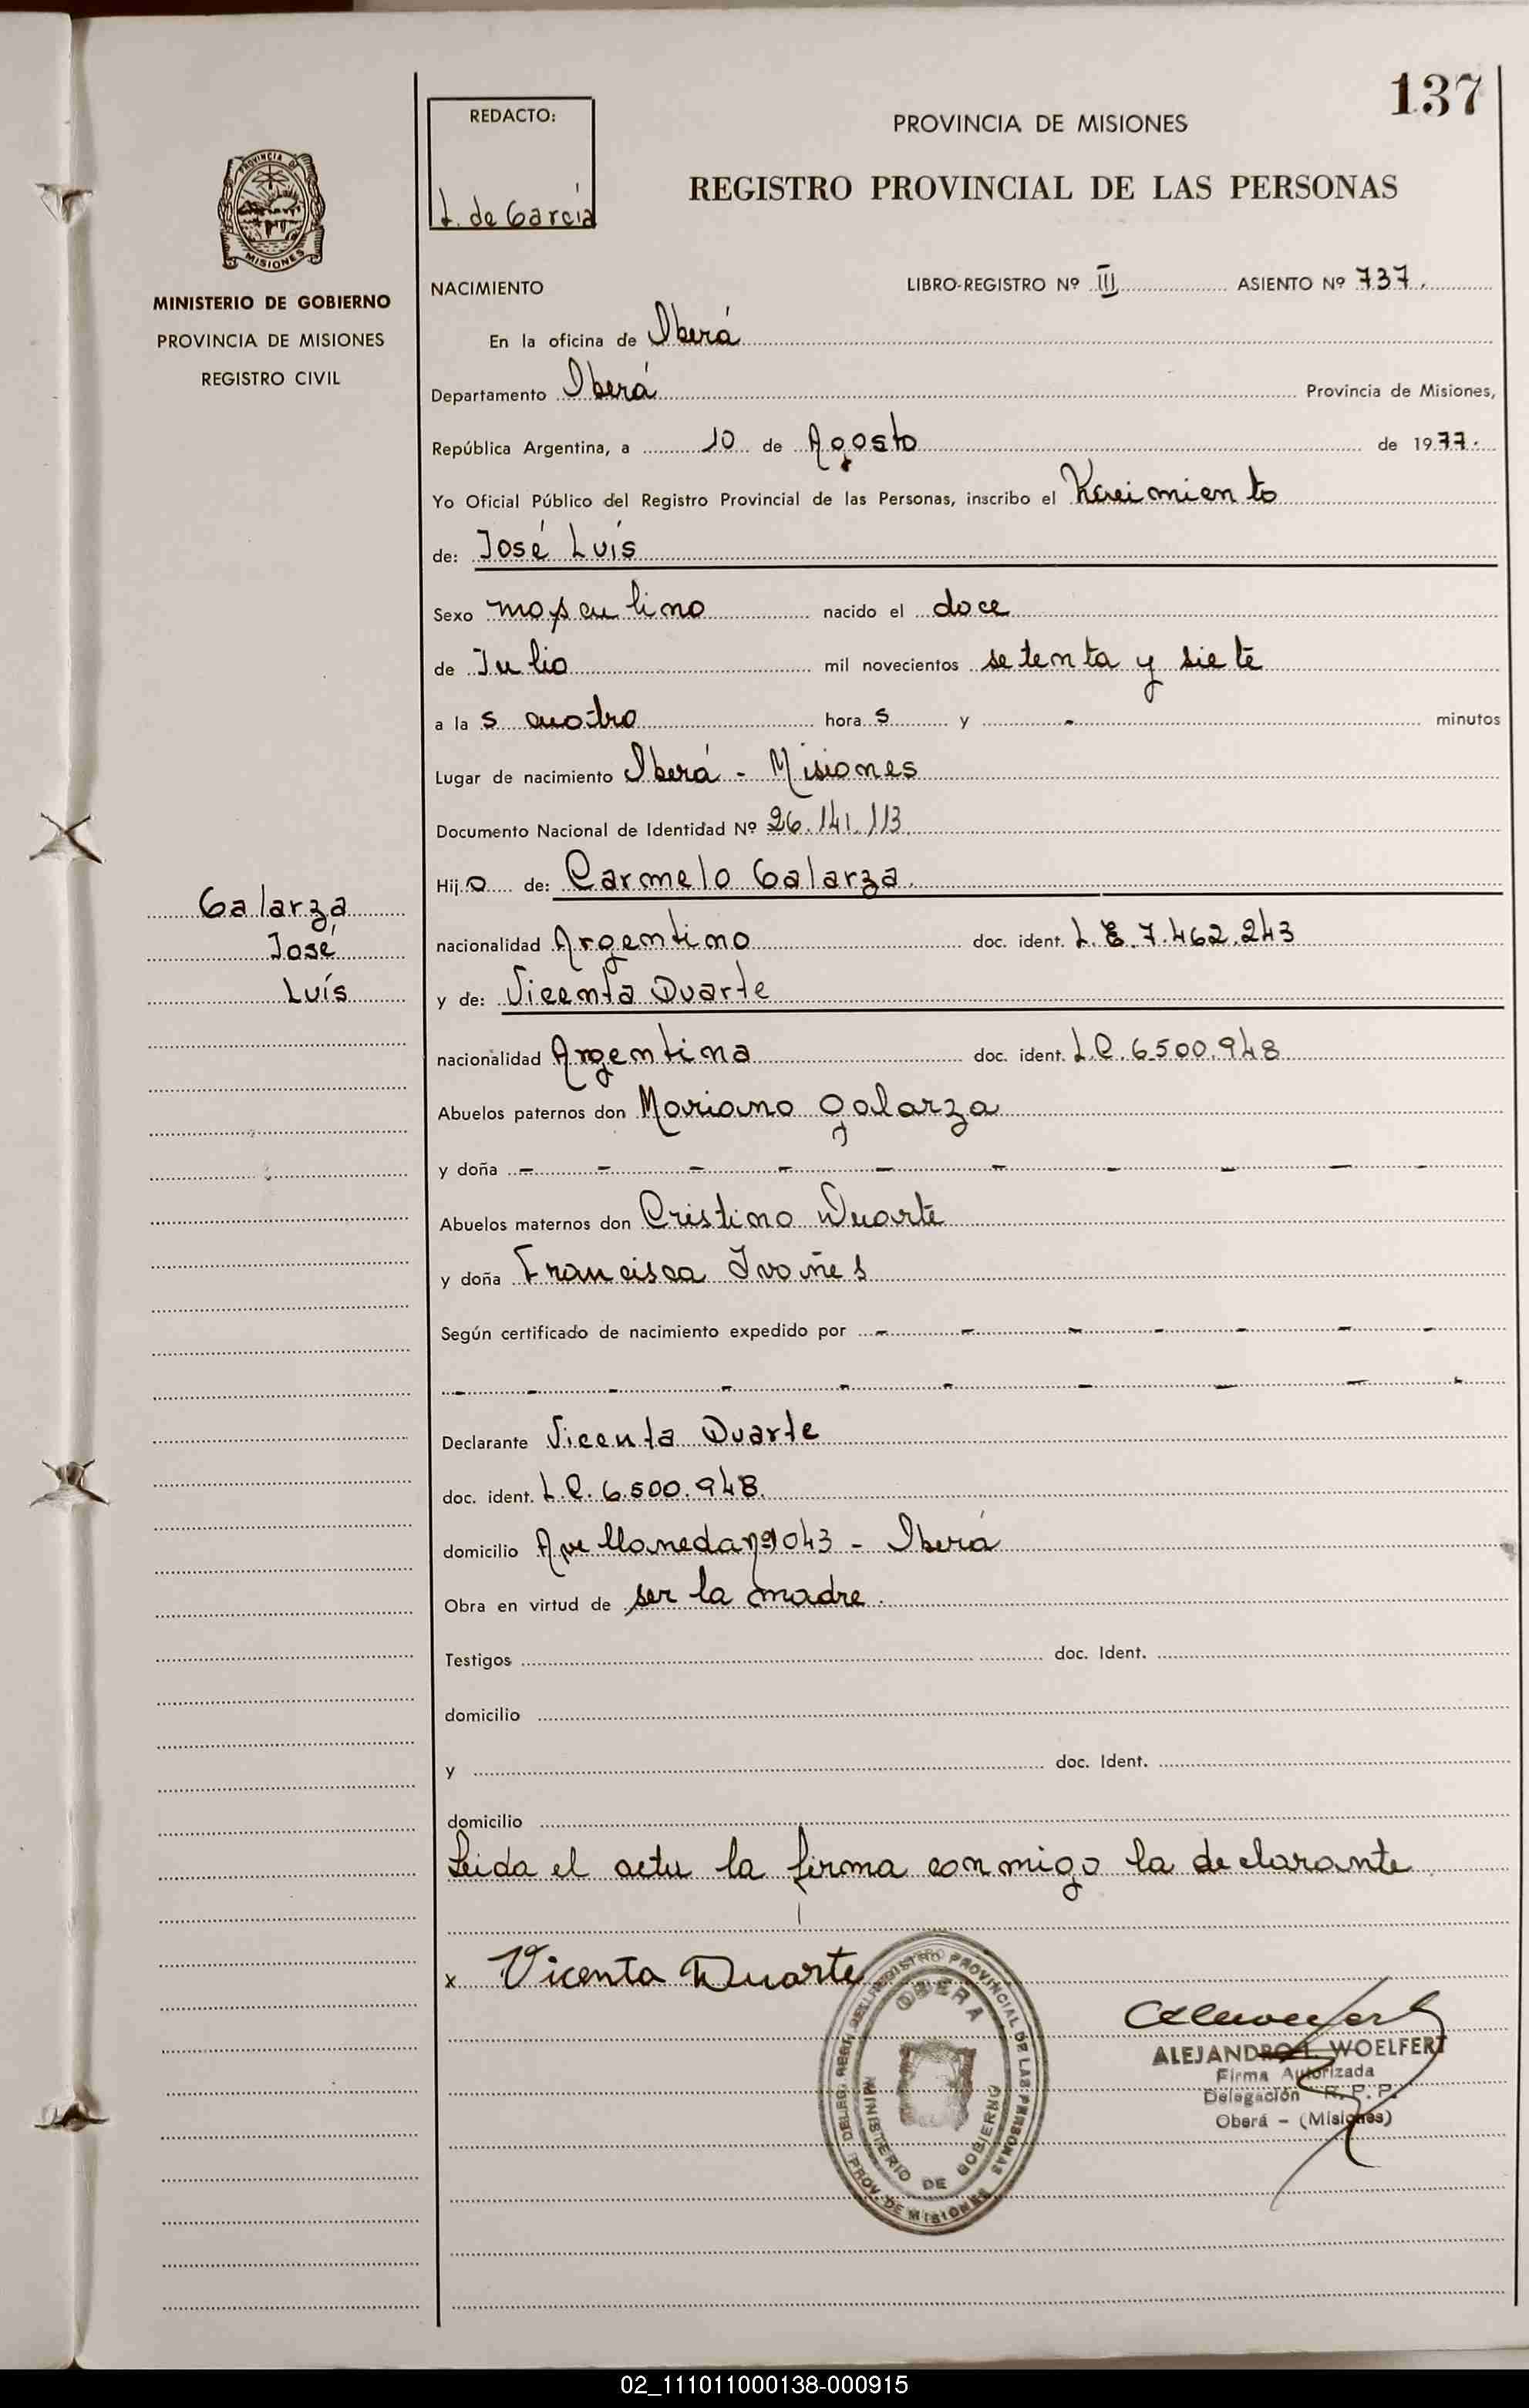 137
REDACTO:
L. de García
PROVINCIA DE MISIONES
REGISTRO PROVINCIAL DE LAS PERSONAS
PROVINCIA DE
MISIONES
MINISTERIO DE GOBIERNO
PROVINCIA DE MISIONES
REGISTRO CIVIL
NACIMIENTO LIBRO-REGISTRO Nº III ASIENTO Nº 737.
En la oficina de Oberá
Departamento Oberá Provincia de Misiones,
República Argentina, a 10 de Agosto de 1977.
Yo Oficial Público del Registro Provincial de las Personas, inscribo el Nacimiento
de: José Luís
Sexo masculino nacido el doce
de Julio mil novecientos setenta y siete
a la s cuatro hora s y - minutos
Lugar de nacimiento Oberá - Misiones
Documento Nacional de Identidad Nº 26.141.113
Hij o de: Carmelo Galarza.
Galarza
José
Luís
nacionalidad Argentino doc. ident. L.E. 7.462.243
y de: Vicenta Duarte
nacionalidad Argentina doc. ident. L.C. 6.500.948
Abuelos paternos don Mariano Galarza
y doña - - - - - - - - - -
Abuelos maternos don Cristino Duarte
y doña Francisca
Según certificado de nacimiento expedido por - - - - - - -
- - - - - - - - - -
Declarante Vicenta Duarte
doc. ident. L.C. 6.500.948.
domicilio Avellaneda nº 043 - Oberá
Obra en virtud de ser la madre.
Testigos doc. Ident.
domicilio
y doc. Ident.
domicilio
Leida el acta la firma conmigo la declarante
x Vicenta Duarte
DELEG. REGISTRO PROVINCIAL DE LAS PERSONAS
OBERA
MINISTERIO DE GOBIERNO
PROV. DE MISIONES
ALEJANDRO WOELFERT
Firma Autorizada
Delegación R. P. P.
Oberá - (Misiones)
02_111011000138-000915